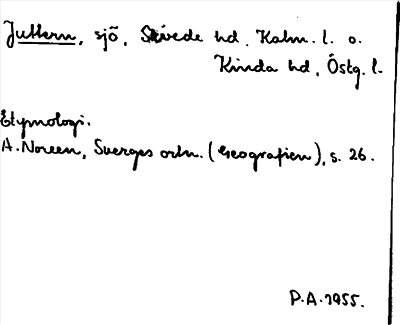 Juttern, sjö, Sevede hd, Kalm. l. o.
Kinda hd, Östg. l.
Etymologi.
A. Noreen, Sverges ortn. (Geografien), s. 26.
P.A. 1955.